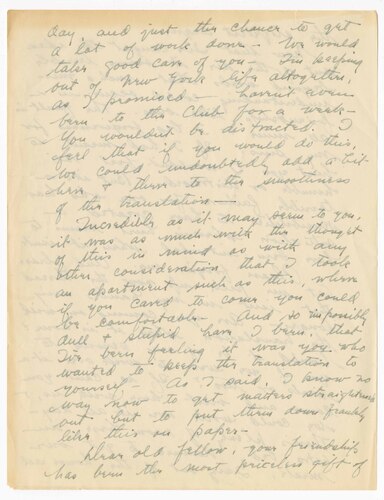 day, and just the chance to get
a lot of work done — We would
take good care of you — I'm keeping
out of New York life altogether,
as I promised — haven't even
been to the Club for a week —
You wouldn't be distracted. I
feel that if you would do this,
we could undoubtedly add a bit
here & there to the smoothness
of the translation —
Incredible as it may seem to you,
it was as much with the thought
of this in mind as with any
other consideration that I took
an apartment such as this, where
if you cared to come, you could
be comfortable — And so impossibly
dull & stupid have I been, that
I've been feeling it was you who
wanted to keep the translation to
yourself — As I said, I know no
way now to get matters straightened
out but to put them down frankly
like this on paper —
Dear old fellow, your friendship
has been the most priceless gift of